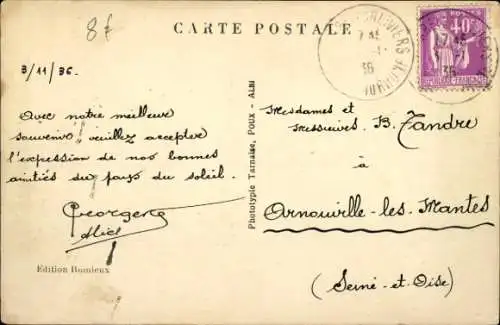 8f
CARTE POSTALE
40c
POSTES
REPUBLIQUE FRANÇAISE
36
3/11/36.
Avec notre meilleur
souvenir veuillez accepter
l'expression de nos bonnes
amitiés du pays du soleil.
Georgette
Edition Romieux
Phototypie Tarnaise, POUX - ALBI
Mesdames et
Messieurs B. Tandre
à
Arnouville-les-Mantes
(Seine-et-Oise)